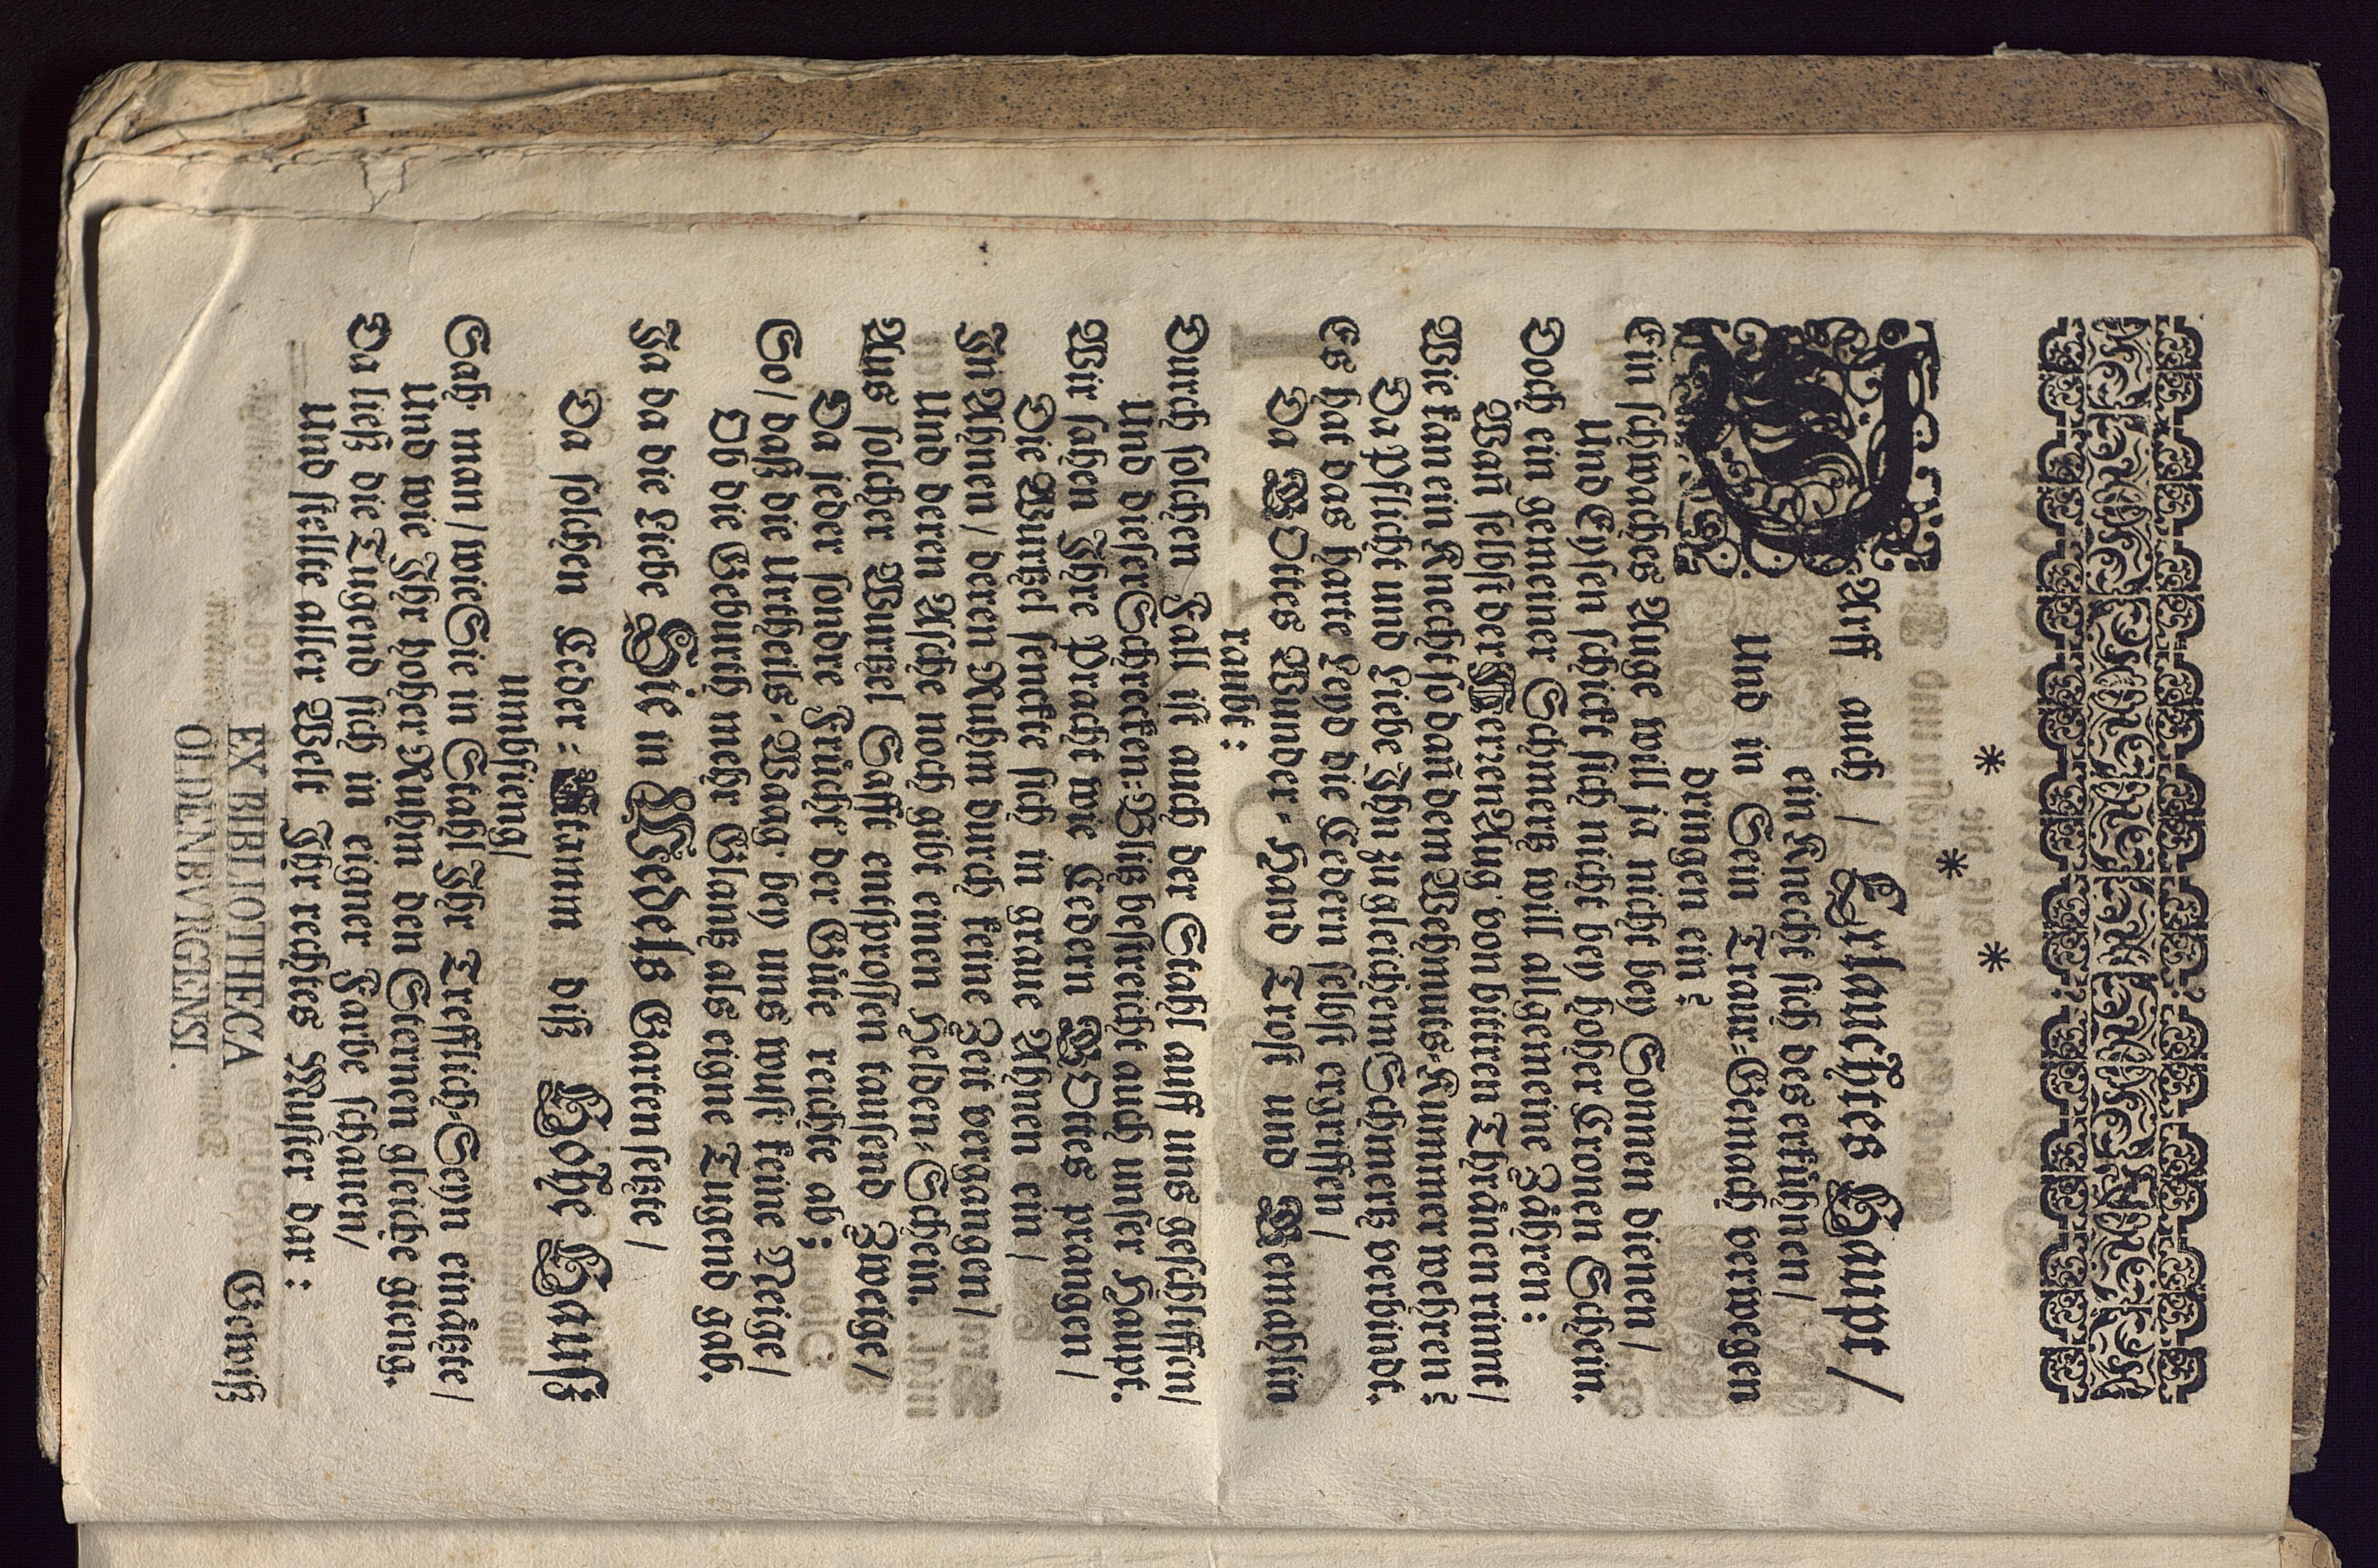 * * *
DArff auch / Erlauchtes Haupt /
ein Knecht sich des erkühnen /
Und in Dein Traur-Gemach verwegen
dringen ein?
Ein schwaches Auge will ja nicht bey Sonnen dienen /
Und Eysen schickt sich nicht bey hoher Cronen Schein.
Doch ein gemeiner Schmertz will algemeine Zähren:
Wañ selbst der HErren Aug' von bittren Thränen rinnt /
Wie kan ein Knecht so dañ dem Wehmuts-Kummer wehren?
Da Pflicht und Liebe Ihn zu gleichem Schmertz verbindt.
Es hat das harte Leyd die Cedern selbst ergriffen /
Da GOttes Wunder-Hand Trost und Gemahlin
raubt:
Durch solchen Fall ist auch der Stahl auff uns geschliffen /
Und dieser Schrecken-Blitz bestreicht auch unser Haupt.
Wir sahen Ihre Pracht wie Cedern GOttes prangen /
Die Wurtzel senckte sich in graue Ahnen ein /
In Ahnen / deren Ruhm durch keine Zeit vergangen /
Und deren Asche noch gibt einen Helden-Schein.
Aus solcher Wurtzel Safft entsprossen tausend Zweige /
Da jeder sondre Frücht der Güte reichte ab;
So / daß die Urtheils-Waag' bey uns wust keine Neige /
Ob die Geburth mehr Glantz als eigne Tugend gab.
Ja da die Liebe Sie in Wedels Garten setzte /
Da solchen Ceder-Stamm diß Hohe Hauß
umbfieng /
Sah' man / wie Sie in Stahl Ihr Trefflich-Seyn einätzte /
Und wie Ihr hoher Ruhm den Sternen gleiche gieng.
Da ließ die Tugend sich in eigner Farbe schauen /
Und stellte aller Welt Ihr rechtes Muster dar:
Gewiß
EX BIBLIOTHECA
OLDENBVRGENSI.